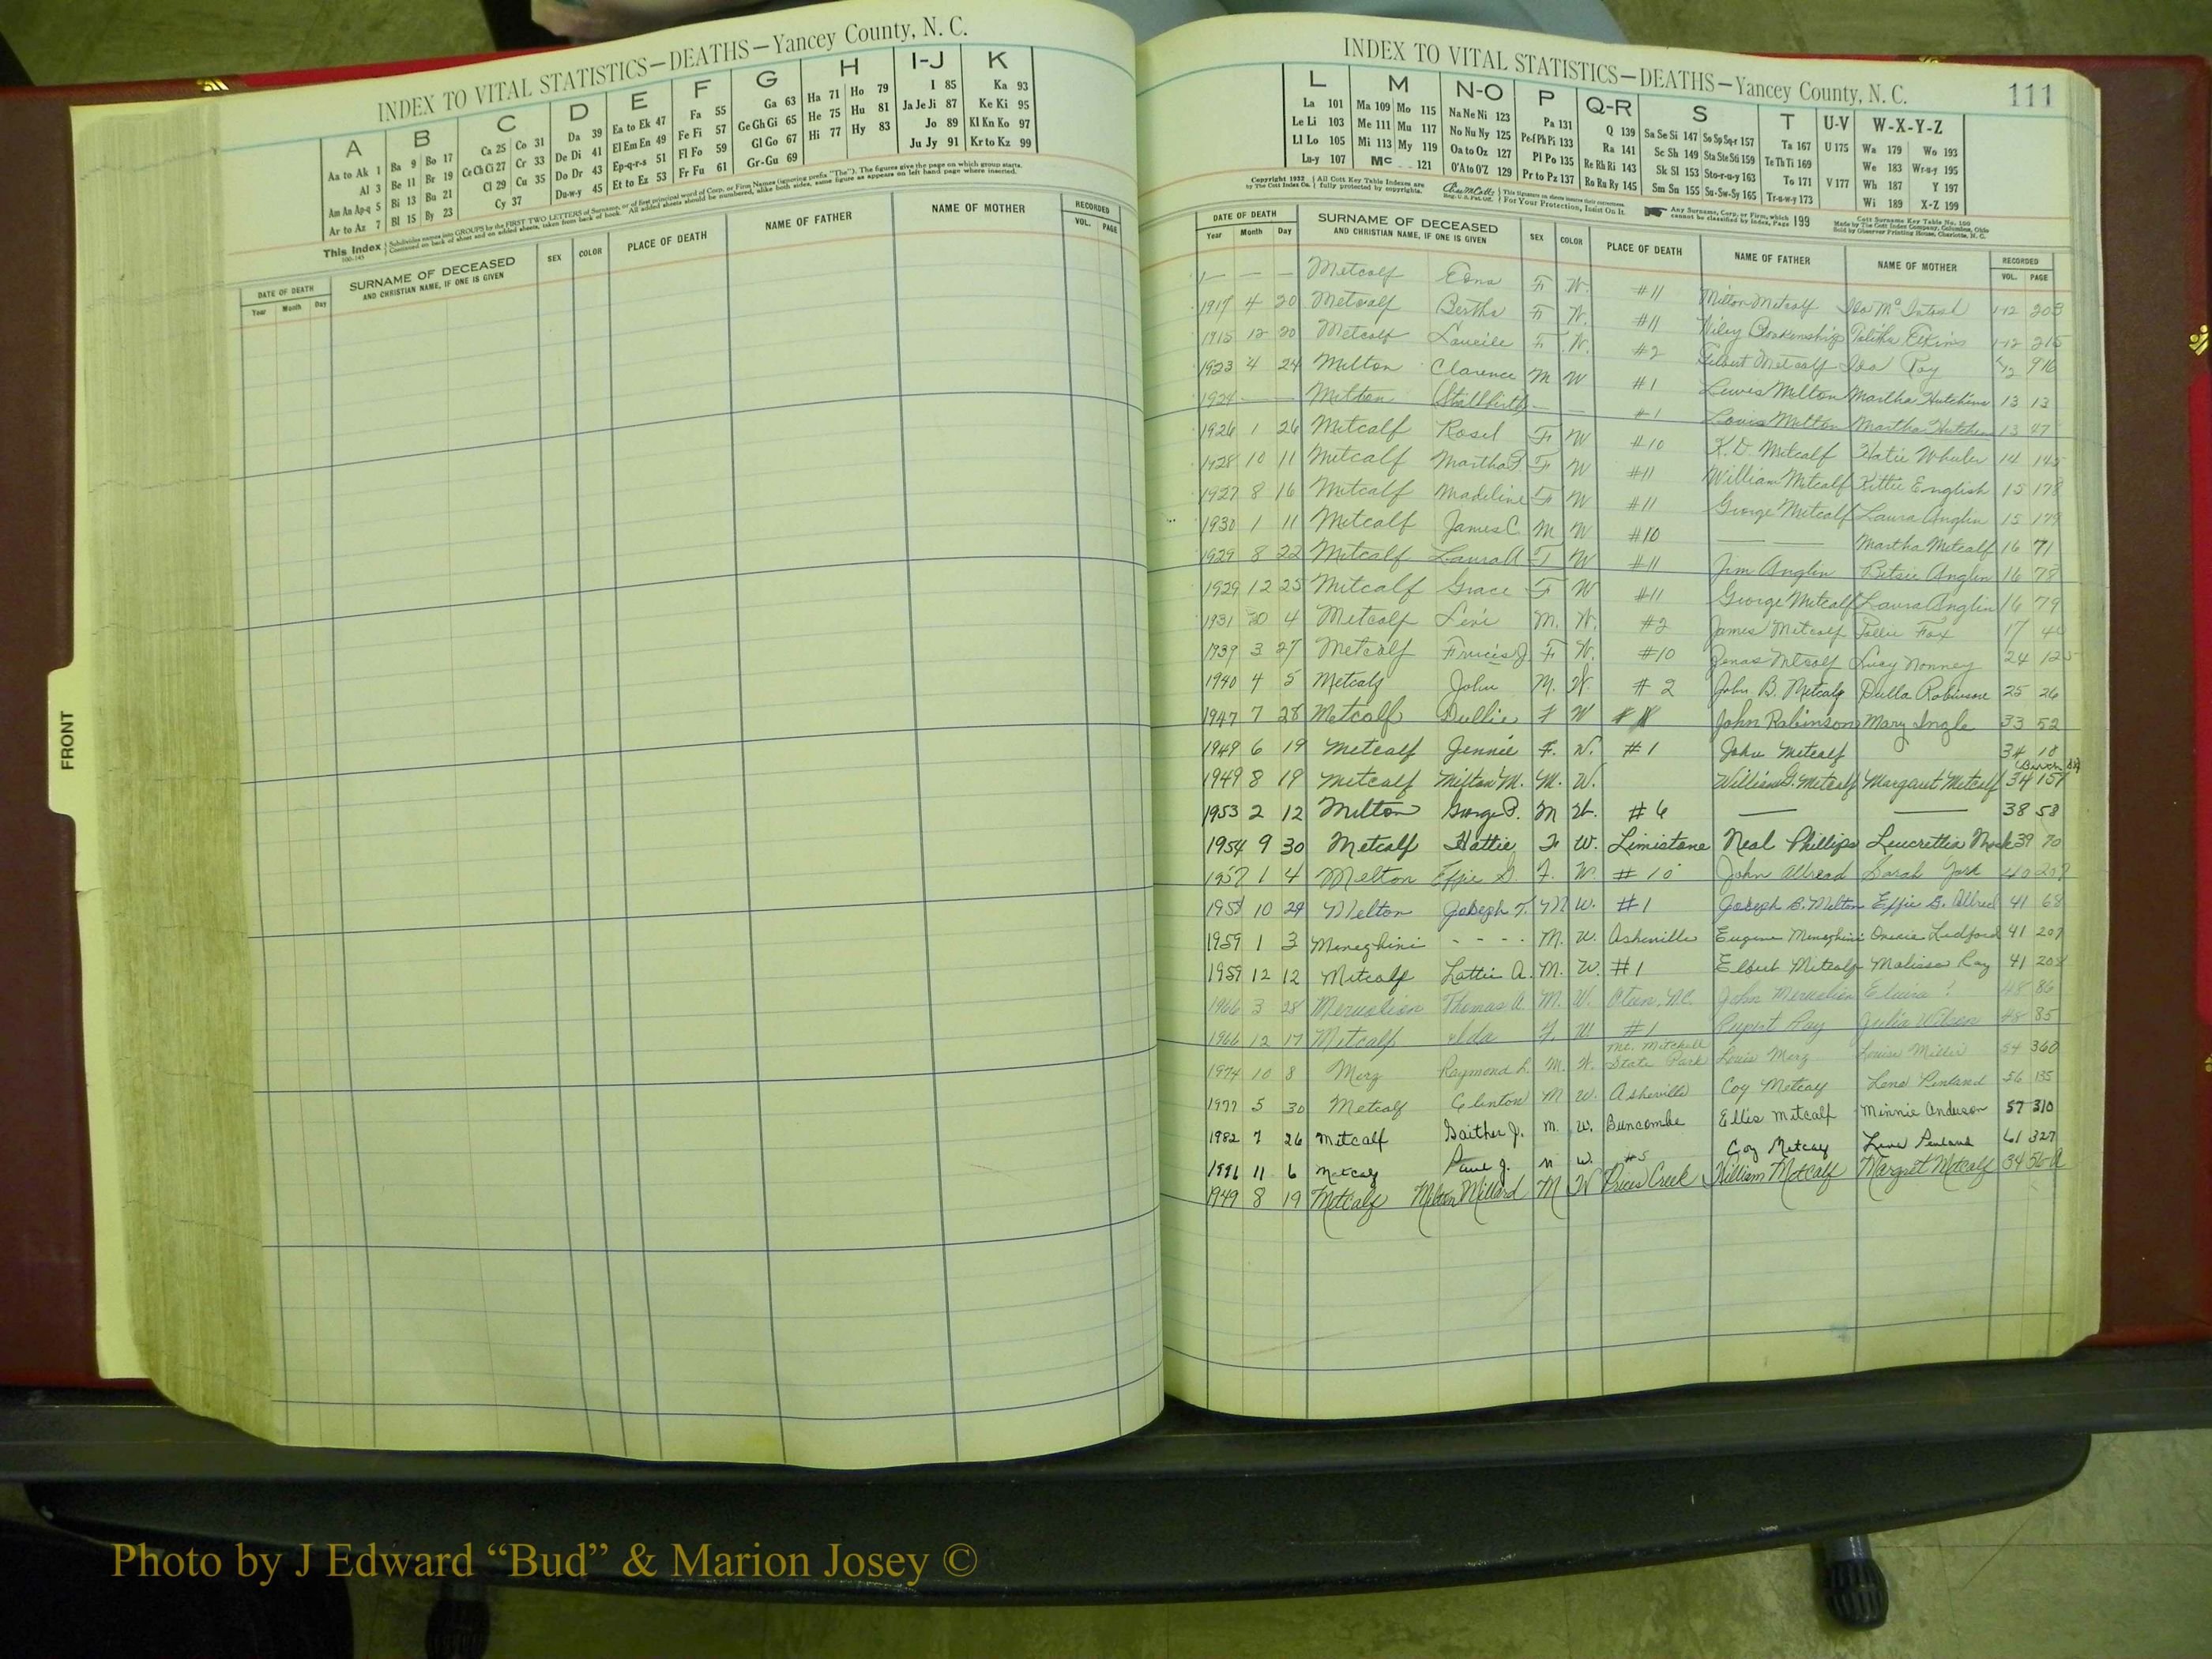 INDEX TO VITAL STATISTICS—DEATHS—Yancey County, N. C.
A B C D E F G H I-J K
Aa to Ak 1 Ba 9 Bo 17 Ca 25 Co 31 Da 39 Ea to Ek 47 Fa 55 Ga 63 Ha 71 Ho 79 I 85 Ka 93
Al 3 Be 11 Br 19 Ce Ch Ci 27 Cr 33 De Di 41 El Em En 49 Fe Fi 57 Ge Gh Gi 65 He 75 Hu 81 Ja Je Ji 87 Ke Ki 95
Am An Ap-q 5 Bi 13 Bu 21 Cl 29 Cu 35 Do Dr 43 Ep-q-r-s 51 Fl Fo 59 Gl Go 67 Hi 77 Hy 83 Jo 89 Kl Kn Ko 97
Ar to Az 7 Bl 15 By 23 Cy 37 Du-w-y 45 Et to Ez 53 Fr Fu 61 Gr-Gu 69 Ju Jy 91 Kr to Kz 99
This Index
DATE OF DEATH SURNAME OF DECEASED SEX COLOR PLACE OF DEATH NAME OF FATHER NAME OF MOTHER RECORDED
Year Month Day AND CHRISTIAN NAME, IF ONE IS GIVEN VOL. PAGE
FRONT
INDEX TO VITAL STATISTICS—DEATHS—Yancey County, N. C. 111
L M N-O P Q-R S T U-V W-X-Y-Z
La 101 Ma 109 Mo 115 Na Ne Ni 123 Pa 131 Q 139 Sa Se Si 147 So Sp Sq-r 157 Ta 167 U 175 Wa 179 Wo 193
Le Li 103 Me 111 Mu 117 No Nu Ny 125 Pe-f Ph Pi 133 Ra 141 Sc Sh 149 Sta Ste Sti 159 Te Th Ti 169 We 183 Wr-u-y 195
Ll Lo 105 Mi 113 My 119 Oa to Oz 127 Pl Po 135 Re Rh Ri 143 Sk Sl 153 Sto-r-u-y 163 To 171 V 177 Wh 187 Y 197
Lu-y 107 Mc 121 O'A to O'Z 129 Pr to Pz 137 Ro Ru Ry 145 Sm Sn 155 Su-Sw-Sy 165 Tr-u-w-y 173 Wi 189 X-Z 199
DATE OF DEATH SURNAME OF DECEASED SEX COLOR PLACE OF DEATH NAME OF FATHER NAME OF MOTHER RECORDED
Year Month Day AND CHRISTIAN NAME, IF ONE IS GIVEN VOL. PAGE
— — — Metcalf Edna F W. #11 Milton Metcalf Ida McIntosh 1-12 203
1917 4 20 Metcalf Bertha F W. #11 Wiley Blankenship Talitha Elkins 1-12 215
1915 12 20 Metcalf Loucile F W. #2 Gilbert Metcalf Ida Ray 916
1923 4 24 Milton Clarence M W #1 Lewis Milton Martha Hutchins 13 13
1924 — — Milton (Stillbirth) — — #1 Louis Milton Martha Hutchins 13 47
1926 1 26 Metcalf Rosel F W #10 K.D. Metcalf Hatie Wheeler 14 145
1928 10 11 Metcalf Martha F W #11 William Metcalf Kittie English 15 178
1927 8 16 Metcalf Madeline F W #11 George Metcalf Laura Anglin 15 179
1930 1 11 Metcalf James C. M W #10 — — Martha Metcalf 16 71
1929 8 22 Metcalf Laura A F W #11 Jim Anglin Betsie Anglin 16 78
1929 12 25 Metcalf Grace F W #11 George Metcalf Laura Anglin 16 79
1931 4 Metcalf Levi M. W. #2 James Metcalf Pollie Fox 17
1939 3 27 Metcalf J. F W. #10 Jonas Metcalf Lucy Nonney 24 125
1940 4 5 Metcalf John M. W. #2 John B. Metcalf Dulla Robinson 25 26
1947 7 28 Metcalf Dullie F W John Robinson Mary Ingle 33 52
1949 6 19 Metcalf Jennie F. W. #1 John Metcalf 34 18
1949 8 19 Metcalf Milton M. M. W. William G. Metcalf Margaret Metcalf 34 157
1953 2 12 Milton George P. M W. #6 — — 38 58
1954 9 30 Metcalf Hattie F W. Limestone Neal Phillips Leucrettia 39 70
1957 1 4 Melton Effie G. F. W. #10 John Allread Sarah York 40 207
1958 10 29 Melton Joseph T. M W. #1 Joseph B. Milton Effie G. Allred 41 68
1959 1 3 Meneghini - - - - M. W. Asheville Eugene Meneghini Onevia Ledford 41 207
1959 12 12 Metcalf Lattie A. M. W. #1 Elbert Metcalf Malissa Ray 41 208
1966 3 28 Thomas A. M. W. Oteen, N.C. John Elvira ? 48 86
1966 12 17 Metcalf Ida F. W #1 Rupert Ray Julia Wilson 48 85
1974 10 8 Merz Raymond L. M. W. Mt. Mitchell State Park Louis Merz Louise Miller 54 360
1977 5 30 Metcalf Clinton M W. Asheville Coy Metcalf Lena Penland 56 135
1982 7 26 Metcalf Gaither J. M. W. Buncombe Ellis Metcalf Minnie Anderson 57 310
1991 11 6 Metcalf Paul J. M W. #5 Coy Metcalf Lena Penland 61 327
1949 8 19 Metcalf Milton Millard M W Prices Creek William Metcalf Margret Metcalf 34 56-A
Photo by J Edward “Bud” & Marion Josey ©